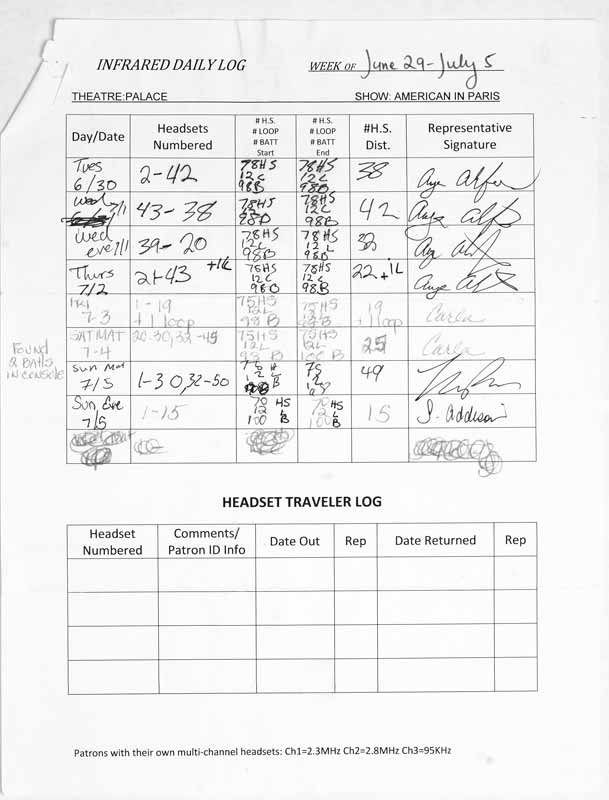 INFRARED DAILY LOG WEEK OF June 29 - July 5
THEATRE:PALACE SHOW: AMERICAN IN PARIS
Day/Date Headsets Numbered # H.S. # LOOP # BATT Start # H.S. # LOOP # BATT End #H.S. Dist. Representative Signature
Tues 6/30 2-42 78HS 12L 98B 78HS 12L 98B 38
Wed 7/1 43-38 78HS 12L 98B 78HS 12L 98B 42
Wed eve 7/1 39-20 78HS 12L 98B 78HS 12L 98B 32
Thurs 7/2 21-43 +1L 78HS 12L 98B 78HS 12L 98B 22 +1L
Fri 7-3 1-19 +1 loop 75HS 12L 98B 75HS 12L 98B 19 +1 loop Carla
SAT MAT 7-4 20-30,32-45 75HS 12L 98B 75HS 12L 100 B 25 Carla
FOUND 2 BATTS IN CONSOLE
Sun Mat 7/5 1-30,32-50 49
Sun, Eve 7/5 1-15 70 HS 12 L 100 B 70 HS 12 L 100 B 15 J. Addison
HEADSET TRAVELER LOG
Headset Numbered Comments/ Patron ID Info Date Out Rep Date Returned Rep
Patrons with their own multi-channel headsets: Ch1=2.3MHz Ch2=2.8MHz Ch3=95KHz